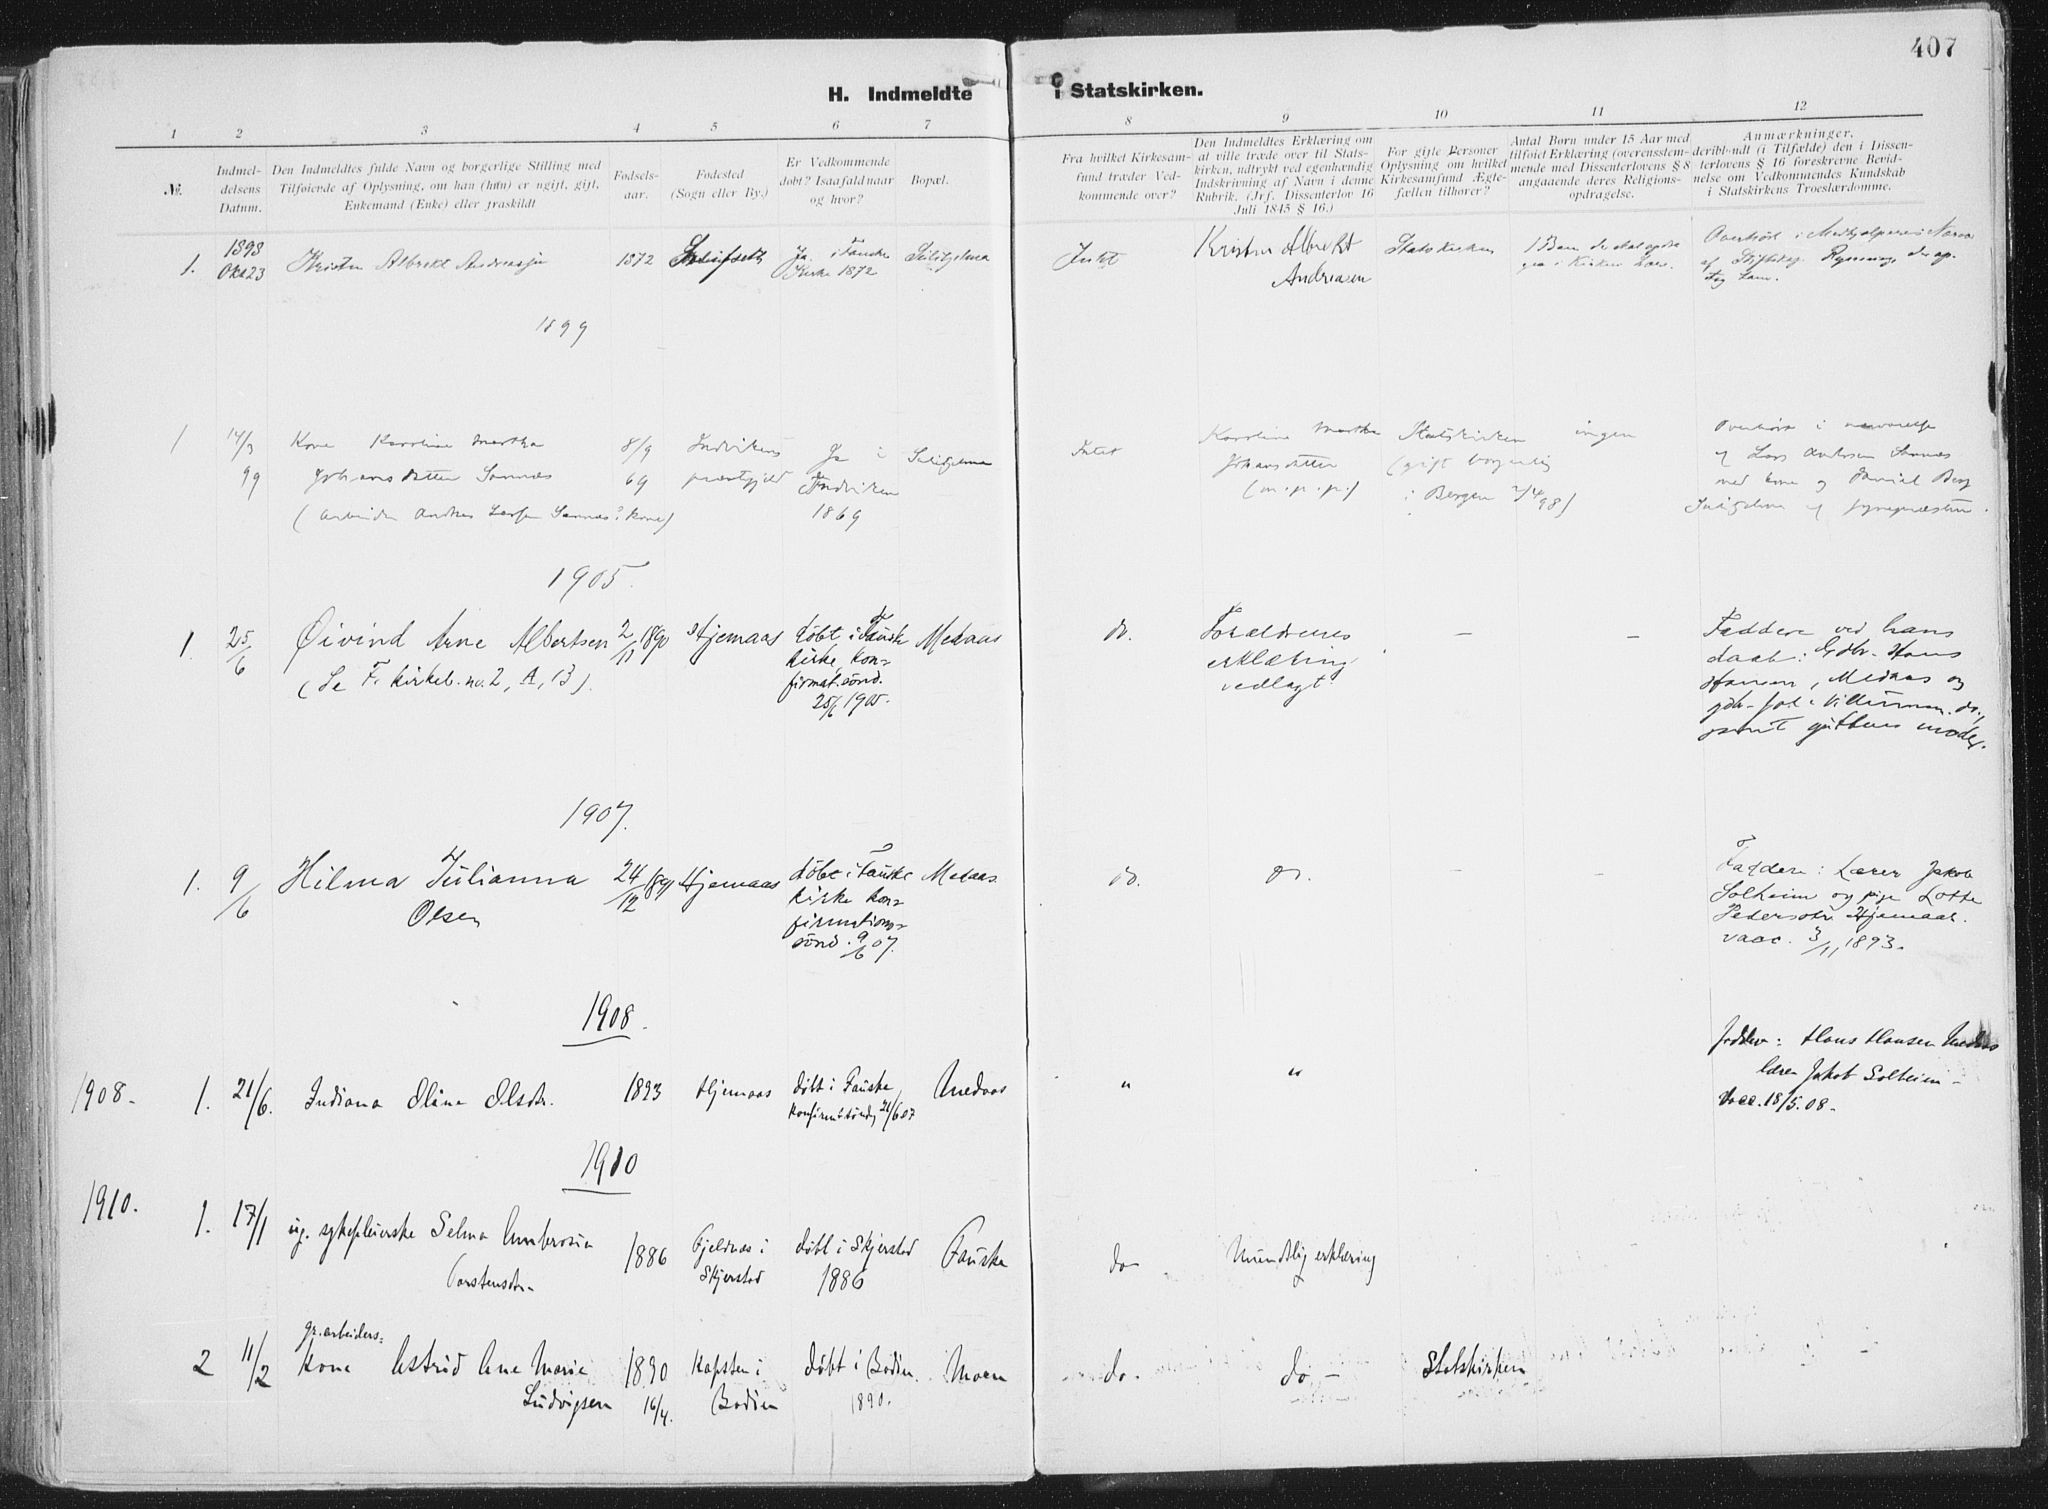 407
H. Indmeldte i Statskirken.
1 2 3 4 5 6 7 8 9 10 11 12
№.
Indmel-
delsens
Datum.
Den Indmeldtes fulde Navn og borgerlige Stilling med
Tilføiende af Oplysning, om han (hun) er ugift, gift,
Enkemand (Enke) eller fraskildt
Fødsels-
aar.
Fødested
(Sogn eller By.)
Er Vedkommende
døbt? Isaafald naar
og hvor?
Bopæl.
Fra hvilket Kirkesam-
fund træder Ved-
kommende over?
Den Indmeldtes Erklæring om
at ville træde over til Stats-
kirken, udtrykt ved egenhændig
Indskrivning af Navn i denne
Rubrik. (Jrf. Dissenterlov 16
Juli 1845 § 16.)
For gifte Personer
Oplysning om hvilket
Kirkesamfund Ægte-
fællen tilhører?
Antal Børn under 15 Aar med
tilføiet Erklæring (overensstem-
mende med Dissenterlovens § 8
angaaende deres Religions-
opdragelse.
Anmærkninger,
deriblandt (i Tilfælde) den i Dissen-
terlovens § 16 foreskrevne Bevid-
nelse om Vedkommendes Kundskab
i Statskirkens Troeslærdomme.
1.
1898
Okt 23
Kristen Albrekt Andreassen
1872
Ja. i Fauske
Kirke 1872
Sulitjelma
Intet
Kristen Albrekt
Andreasen
Statskirken
1 Barn
i Kirkens Lære.
1899
1
14/3
99
Kone Karoline Martha
Johansdatter Sannæs
(arbeider Andreas Larsen Sannæs' kone)
8/9
69
Indvikens
præstgjeld
Ja i
Indviken
1869
Sulitjelma
Intet
Karoline Martha
Johansdatter
(m. p. p.)
Statskirken
(gift borgerlig
i Bergen 2/4 98)
ingen
Overhørt i nærværelse
af Lars Andersen Sannæs
med kone og Daniel Berg
Sulitjelma af sognepræsten.
1905.
1.
25/6
Øivind Arne Albertsen
(Se F. kirkeb. no. 2, A, 13).
2/11 1890
Hjemaas
døbt i Fauske
kirke, kon=
firmat. sønd.
25/6 1905.
Medaas
do.
Forældrenes
erklæring
vedlagt.
–
–
Faddere ved hans
daab: Gdbr. Hans
Hansen, Medaas og
gdbr. Joh. Villumsen. do.,
samt guttens moder.
1907.
1.
9/6
Hilma Julianna
Olsen
24/12 1891
Hjemaas
døbt i Fauske
kirke kon=
firmations=
sønd. 9/6 07.
Medaas.
do.
do.
–
–
Faddere: Lærer Jakob
Solheim og pige Lotte
Pedersdtr Hjemaas.
vacc. 3/11 1893.
1908.
1908.
1.
21/6.
Indiana Oline Olsdtr.
1893
Hjemaas
døbt i Fauske
Konfirm.søndag 21/6 07
Medaas
"
"
Faddere: Hans Hansen Medaas
lærer Jakob Solheim –
Vacc. 18/5. 08.
1910
1910.
1.
17/1
ug. sykepleierske Selma Ambrosia
Torstensdtr.
1886
Fjeldnæs i
Skjerstad
døbt i Skjerstad
1886
Fauske
do
Mundtlig erklæring
2
11/2
gr.arbeiders=
kone Astrid Ane Marie
Ludvigsen
1890
16/4.
Kapsten i
Bodin
døbt i Bodin.
1890.
Moen
do.
do –
Statskirken